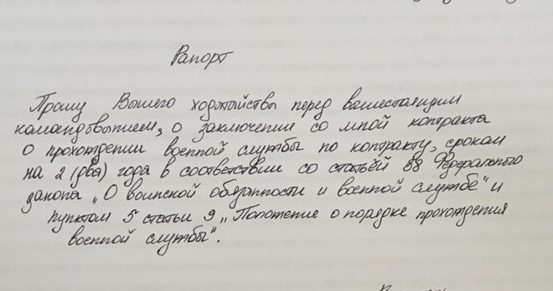 Рапорт
Прошу Вашего ходатайства перед вышестоящим
командованием, о заключении со мной контракта
о прохождении военной службы по контракту, сроком
на 2 (два) года в соответствии со статьёй 38 Федерального
закона „О воинской обязанности и военной службе" и
пунктом 5 статьи 9 „Положение о порядке прохождения
военной службы".